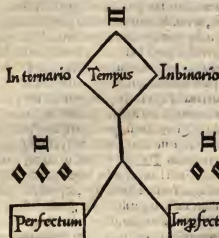 In ternario Tempus Inbinario
Perfectum Imꝑfect